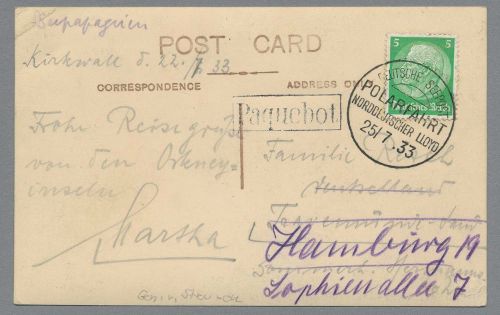 POST CARD
Kirkwall d. 22./7. 33
CORRESPONDENCE
ADDRESS ON
5 5
Deutsches Reich
DEUTSCHE
POLARFAHRT
NORDDEUTSCHER LLOYD
25/7.33
Paquebot
Frohe Reisegrüße
von den Orkney-
inseln
Marsha
Familie
Deutschland
Travemünde
Hamburg 19
Sophienallee 7